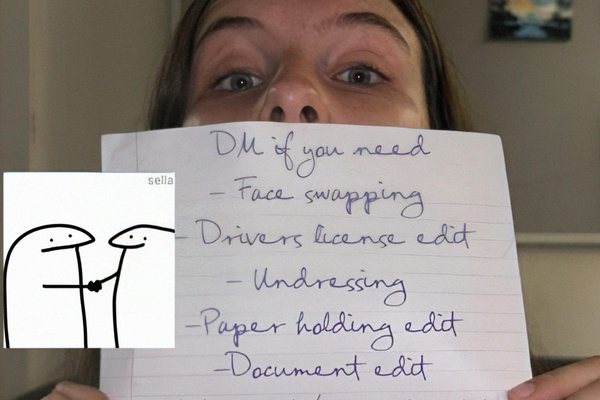 DM if you need
- Face swapping
- Drivers license edit
- Undressing
- Paper holding edit
- Document edit
sella